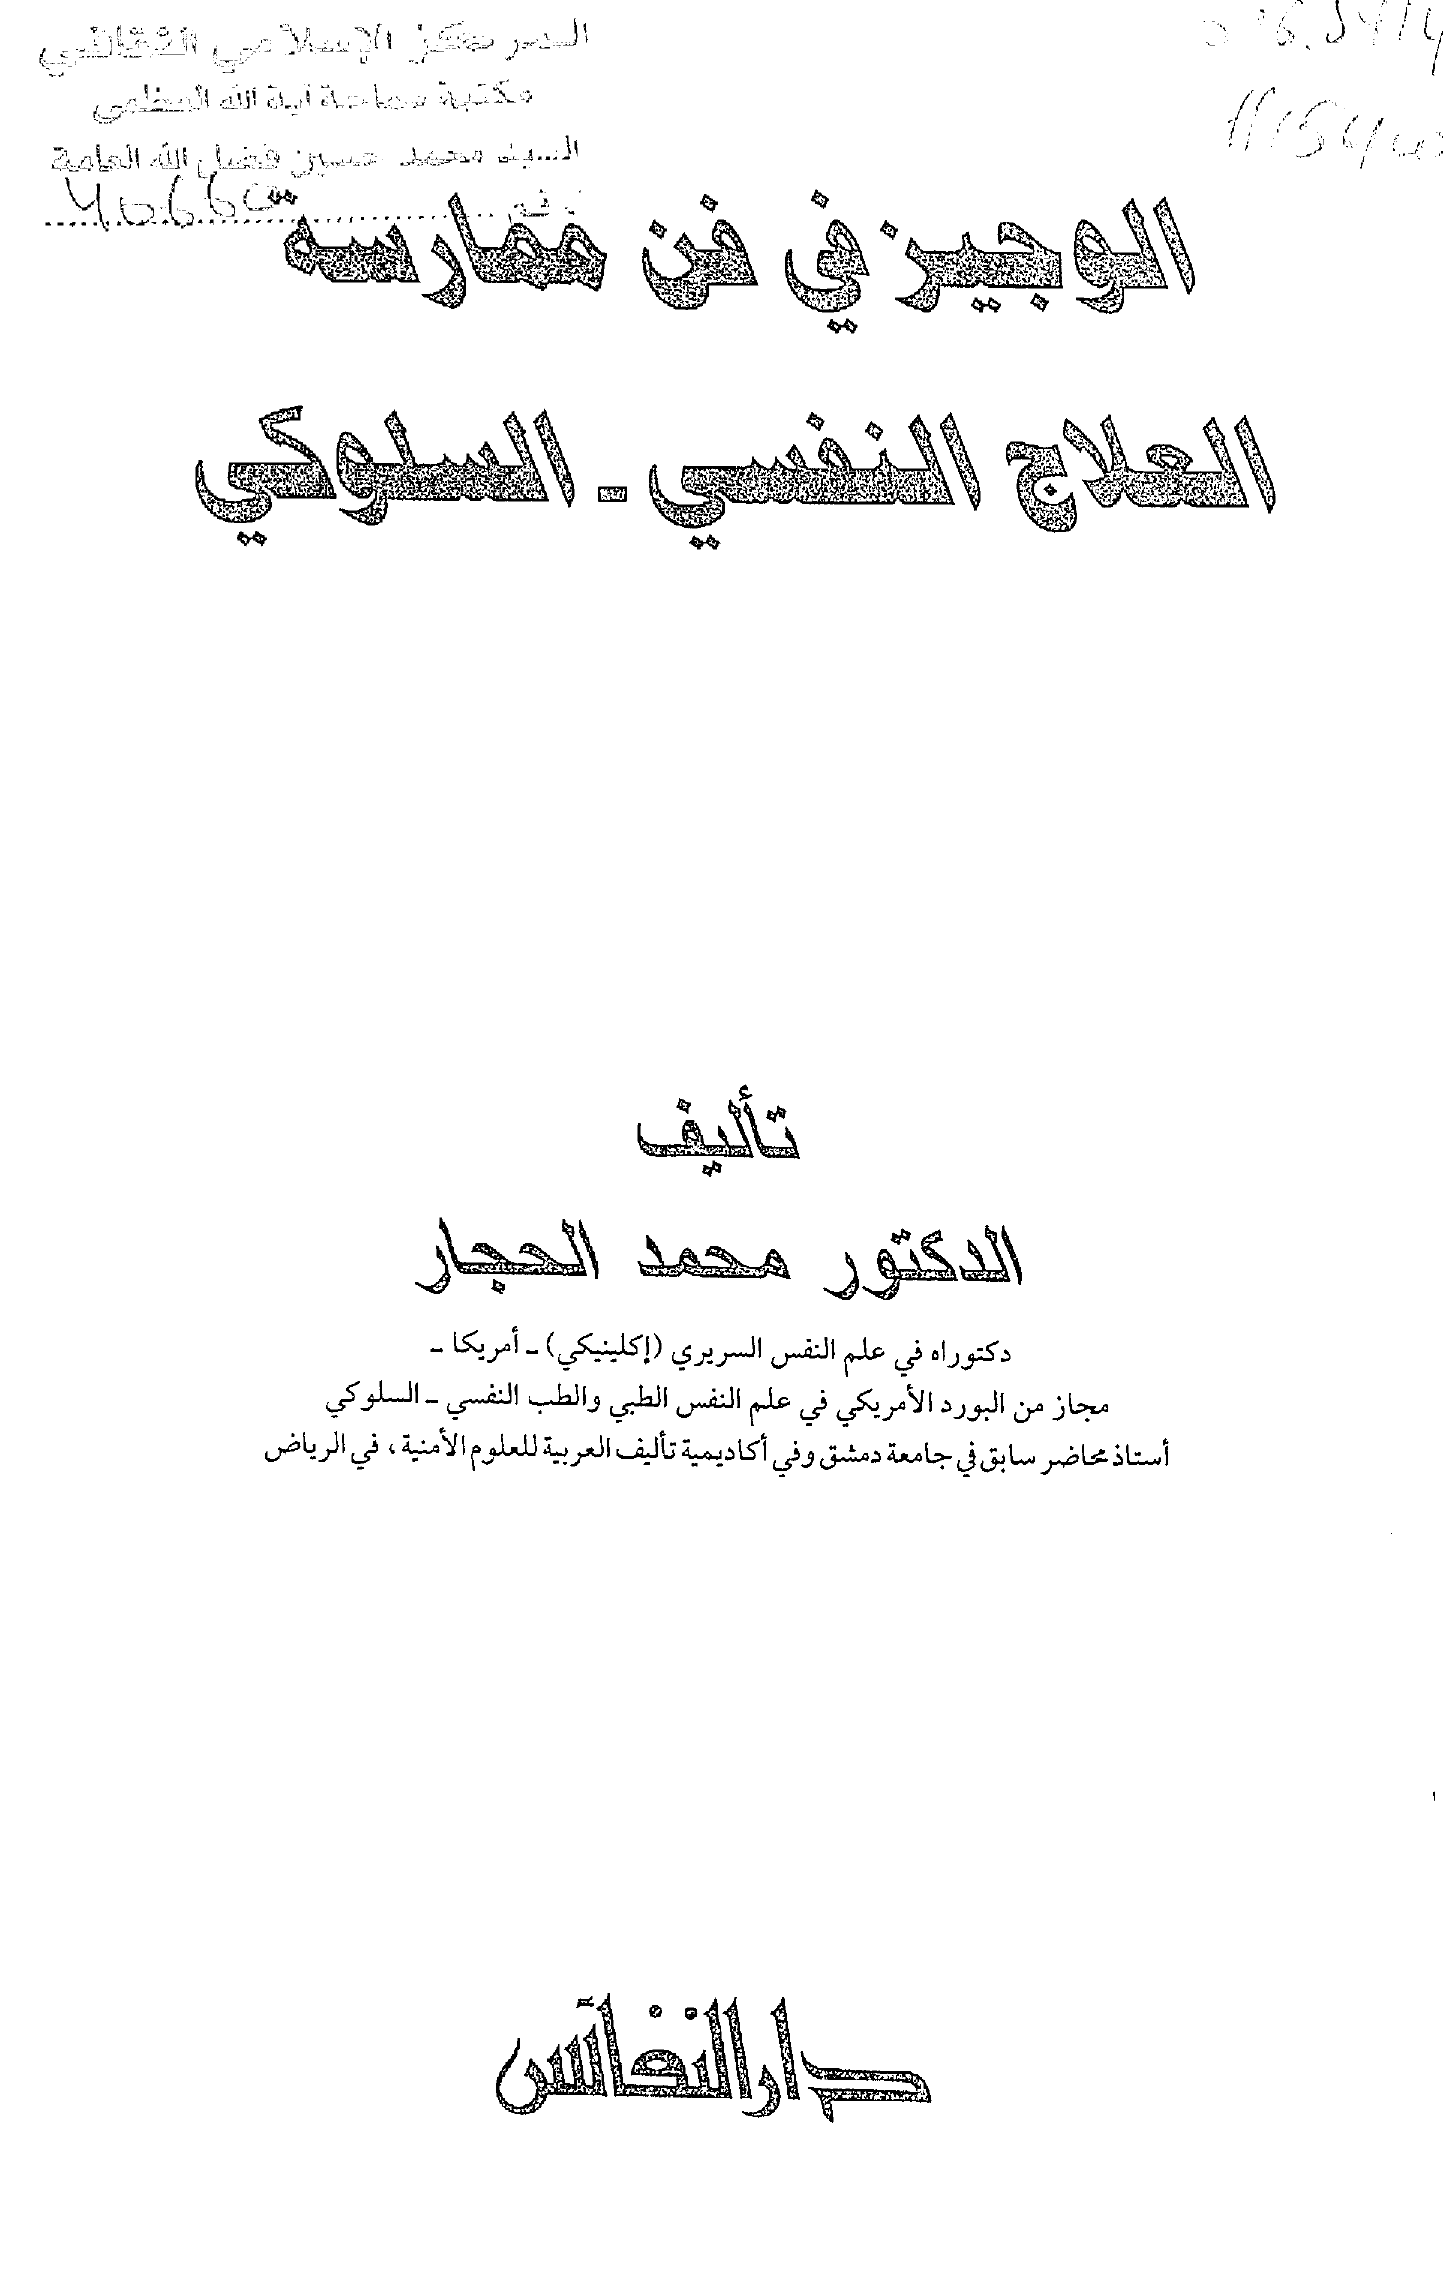 المركز الإسلامي الثقافي
مكتبة سماحة آية الله العظمى
السيد محمد حسين فضل الله العامة
الوجيز في فن ممارسة
العلاج النفسي - السلوكي
تأليف
الدكتور محمد الحجار
دكتوراه في علم النفس السريري (إكلينيكي) - أمريكا -
مجاز من البورد الأمريكي في علم النفس الطبي والطب النفسي - السلوكي
أستاذ محاضر سابق في جامعة دمشق وفي أكاديمية تأليف العربية للعلوم الأمنية، في الرياض
دار النفائس